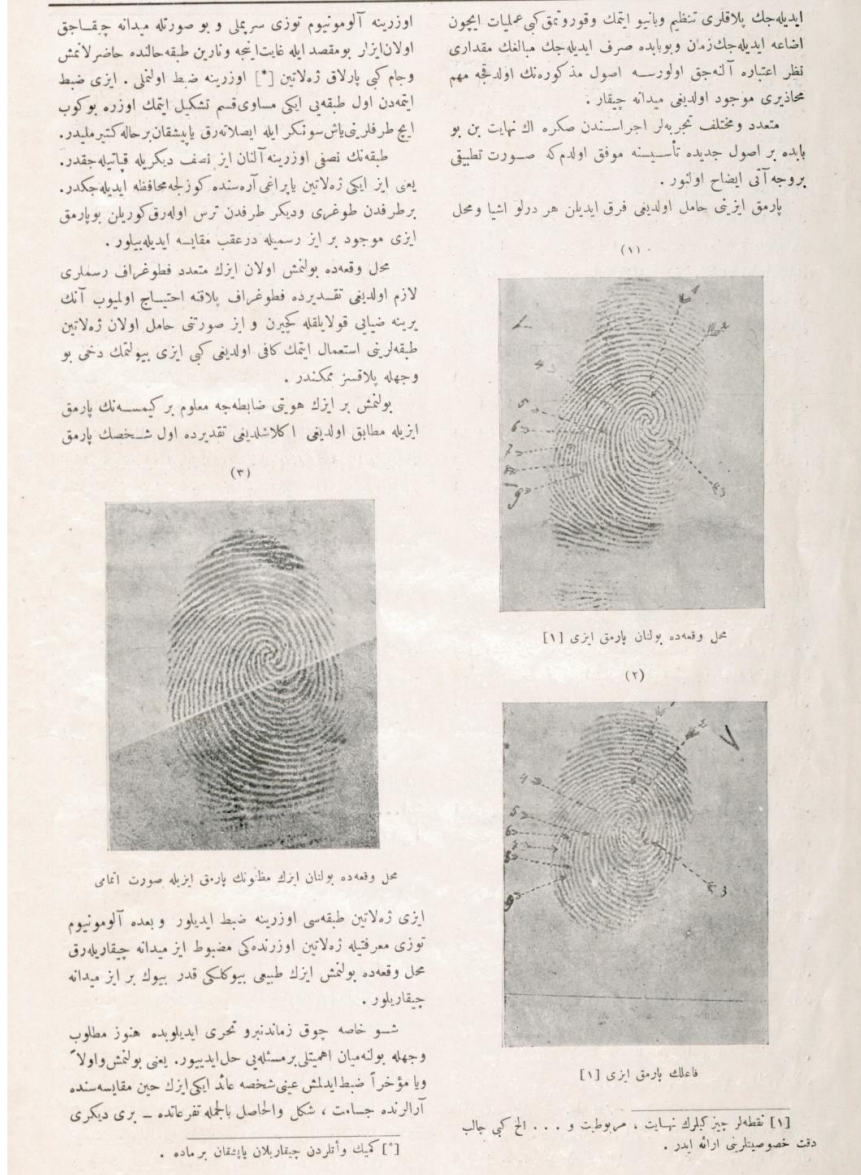 ایدیله‌جك پلاقلری تنظیم وبانیو ایتمك وقوروتمق كبی عملیات ایچون
اضاعه ایدیله‌جك زمان وبوبابده صرف ایدیله‌جك مبالغك مقداری
نظر اعتباره آلنه‌جق اولورسه اصول مذكوره‌نك اولدقجه مهم
محاذیری موجود اولدیغی میدانه چیقار .
متعدد ومختلف تجربه‌لر اجراسندن صكره اك نهایت بن بو
بابده بر اصول جدیده تأسیسنه موفق اولدم‌كه صورت تطبیقی
بروجه آتی ایضاح اولنور .
پارمق ایزینی حامل اولدیغی فرق ایدیلن هر درلو اشیا ومحل
(۱)
محل وقعه‌ده بولنان پارمق ایزی [۱]
(۲)
فاعلك پارمق ایزی [۱]
[۱] نقطه‌لر چیزكیلرك نهایت ، مربوطیت و . . . الخ كبی جالب
دقت خصوصیتلرینی ارائه ایدر .
اوزرینه آلومونیوم توزی سرپملی و بو صورتله میدانه چیقاجق
اولان ایزلر بومقصد ایله غایت اینجه ونارین طبقه حالنده حاضرلانمش
وجام كبی پارلاق ژه‌لاتین [*] اوزرینه ضبط اولنملی . ایزی ضبط
ایتمه‌دن اول طبقه‌یی ایكی مساوی قسم تشكیل ایتمك اوزره بوكوب
ایچ طرفلرینی یاش سونكر ایله ایصلانه‌رق یاپیشقان بر حاله كتیرملیدر.
طبقه‌نك نصفی اوزرینه آلنان ایز نصف دیكریله قپاتیله‌جقدر.
یعنی ایز ایكی ژه‌لاتین یاپراغی آره‌سنده كوزلجه محافظه ایدیله‌جكدر.
بر طرفدن طوغری ودیكر طرفدن ترس اوله‌رق كوریلن بو پارمق
ایزی موجود بر ایز رسمیله درعقب مقایسه ایدیله‌بیلور .
محل وقعه‌ده بولنمش اولان ایزك متعدد فطوغراف رسملری
لازم اولدیغی تقدیرده فطوغراف پلاقنه احتیاج اولمیوب آنك
یرینه ضیایی قولایلقله كچیرن و ایز صورتنی حامل اولان ژه‌لاتین
طبقه‌لرینی استعمال ایتمك كافی اولدیغی كبی ایزی بیولتمك دخی بو
وجهله پلاقسز ممكندر .
بولنمش بر ایزك هویتی ضابطه‌جه معلوم بر كیمسه‌نك پارمق
ایزیله مطابق اولدیغی اكلاشلدیغی تقدیرده اول شخصك پارمق
(۳)
محل وقعه‌ده بولنان ایزك مظنونك پارمق ایزیله صورت اتمامی
ایزی ژه‌لاتین طبقه‌سی اوزرینه ضبط ایدیلور وبعده آلومونیوم
توزی معرفتیله ژه‌لاتین اوزرنده‌كی مضبوط ایز میدانه چیقاریله‌رق
محل وقعه‌ده بولنمش ایزك طبیعی بیوكلكی قدر بیوك بر ایز میدانه
چیقاریلور .
شو خاصه چوق زماندنبرو تحری ایدیلوبده هنوز مطلوب
وجهله بولنه‌میان اهمیتلی بر مسئله‌یی حل ایدییور. یعنی بولنمش واولاً
ویا مؤخراً ضبط ایدلمش عینی شخصه عائد ایكی ایزك حین مقایسه‌سنده
آرالرنده جسامت ، شكل والحاصل بالجمله تفرعاتده ـ بری دیكری
[*] كمیك وأتلردن چیقاریلان یاپیشقان بر ماده .